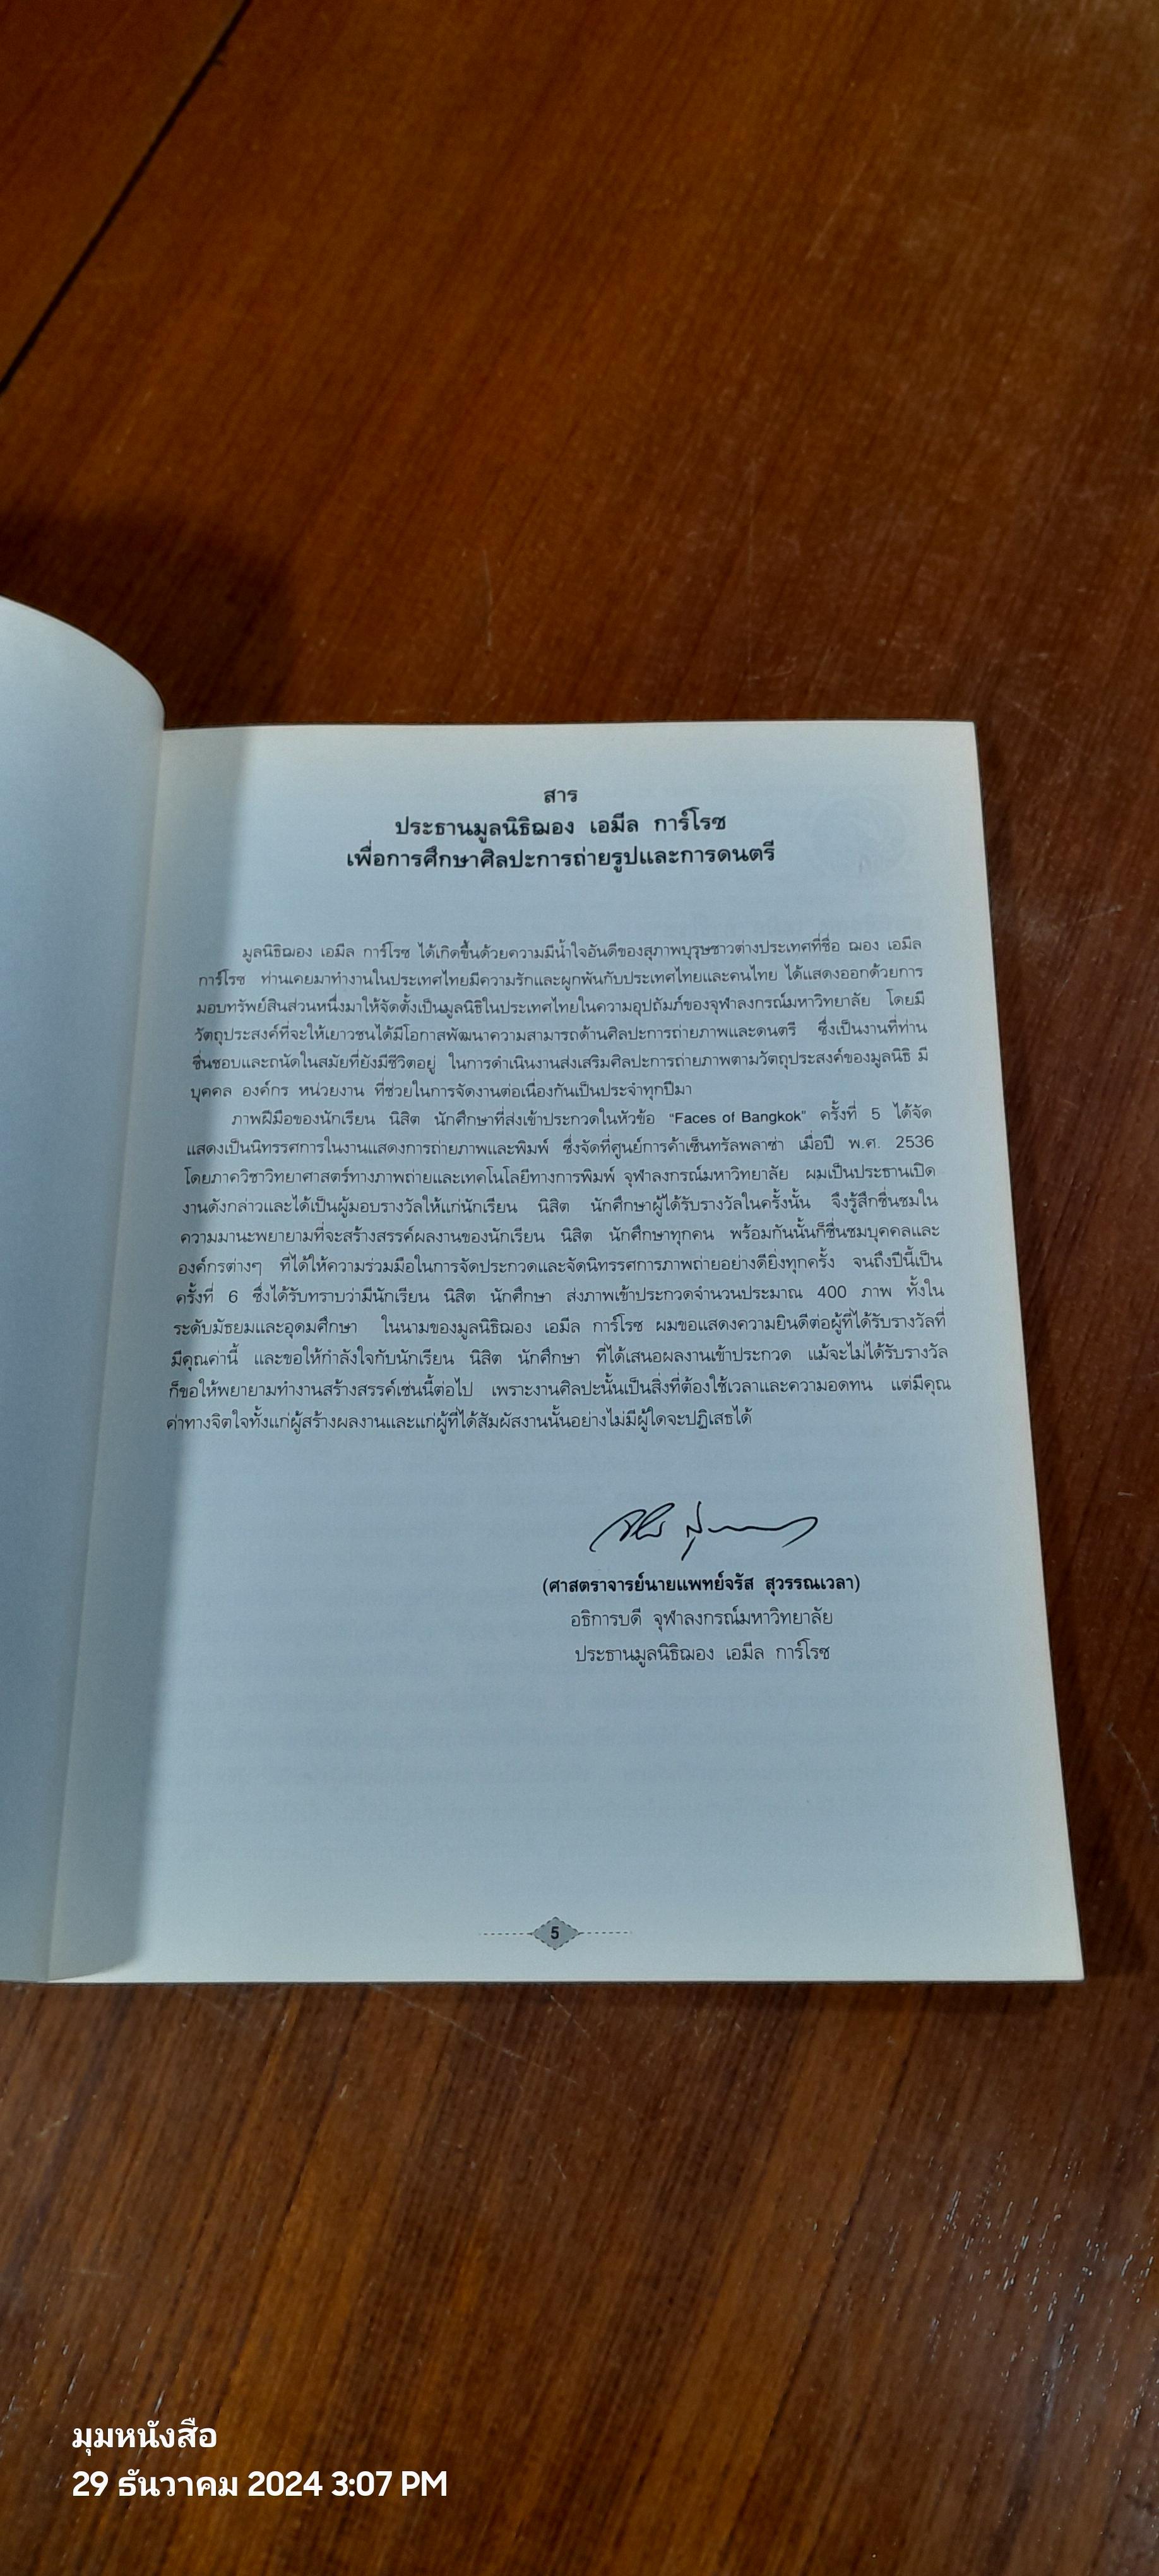 สาร
ประธานมูลนิธิฌอง เอมีล การ์โรซ
เพื่อการศึกษาศิลปะการถ่ายรูปและการดนตรี
มูลนิธิฌอง เอมีล การ์โรซ ได้เกิดขึ้นด้วยความมีน้ำใจอันดีของสุภาพบุรุษชาวต่างประเทศที่ชื่อ ฌอง เอมีล
การ์โรซ ท่านเคยมาทำงานในประเทศไทยมีความรักและผูกพันกับประเทศไทยและคนไทย ได้แสดงออกด้วยการ
มอบทรัพย์สินส่วนหนึ่งมาให้จัดตั้งเป็นมูลนิธิในประเทศไทยในความอุปถัมภ์ของจุฬาลงกรณ์มหาวิทยาลัย โดยมี
วัตถุประสงค์ที่จะให้เยาวชนได้มีโอกาสพัฒนาความสามารถด้านศิลปะการถ่ายภาพและดนตรี ซึ่งเป็นงานที่ท่าน
ชื่นชอบและถนัดในสมัยที่ยังมีชีวิตอยู่ ในการดำเนินงานส่งเสริมศิลปะการถ่ายภาพตามวัตถุประสงค์ของมูลนิธิ มี
บุคคล องค์กร หน่วยงาน ที่ช่วยในการจัดงานต่อเนื่องกันเป็นประจำทุกปีมา
ภาพฝีมือของนักเรียน นิสิต นักศึกษาที่ส่งเข้าประกวดในหัวข้อ "Faces of Bangkok" ครั้งที่ 5 ได้จัด
แสดงเป็นนิทรรศการในงานแสดงการถ่ายภาพและพิมพ์ ซึ่งจัดที่ศูนย์การค้าเซ็นทรัลพลาซ่า เมื่อปี พ.ศ. 2536
โดยภาควิชาวิทยาศาสตร์ทางภาพถ่ายและเทคโนโลยีทางการพิมพ์ จุฬาลงกรณ์มหาวิทยาลัย ผมเป็นประธานเปิด
งานดังกล่าวและได้เป็นผู้มอบรางวัลให้แก่นักเรียน นิสิต นักศึกษาผู้ได้รับรางวัลในครั้งนั้น จึงรู้สึกชื่นชมใน
ความมานะพยายามที่จะสร้างสรรค์ผลงานของนักเรียน นิสิต นักศึกษาทุกคน พร้อมกันนั้นก็ชื่นชมบุคคลและ
องค์กรต่างๆ ที่ได้ให้ความร่วมมือในการจัดประกวดและจัดนิทรรศการภาพถ่ายอย่างดียิ่งทุกครั้ง จนถึงปีนี้เป็น
ครั้งที่ 6 ซึ่งได้รับทราบว่ามีนักเรียน นิสิต นักศึกษา ส่งภาพเข้าประกวดจำนวนประมาณ 400 ภาพ ทั้งใน
ระดับมัธยมและอุดมศึกษา ในนามของมูลนิธิฌอง เอมีล การ์โรซ ผมขอแสดงความยินดีต่อผู้ที่ได้รับรางวัลที่
มีคุณค่านี้ และขอให้กำลังใจกับนักเรียน นิสิต นักศึกษา ที่ได้เสนอผลงานเข้าประกวด แม้จะไม่ได้รับรางวัล
ก็ขอให้พยายามทำงานสร้างสรรค์เช่นนี้ต่อไป เพราะงานศิลปะนั้นเป็นสิ่งที่ต้องใช้เวลาและความอดทน แต่มีคุณ
ค่าทางจิตใจทั้งแก่ผู้สร้างผลงานและแก่ผู้ที่ได้สัมผัสงานนั้นอย่างไม่มีผู้ใดจะปฏิเสธได้
(ศาสตราจารย์นายแพทย์จรัส สุวรรณเวลา)
อธิการบดี จุฬาลงกรณ์มหาวิทยาลัย
ประธานมูลนิธิฌอง เอมีล การ์โรซ
5
มุมหนังสือ
29 ธันวาคม 2024 3:07 PM